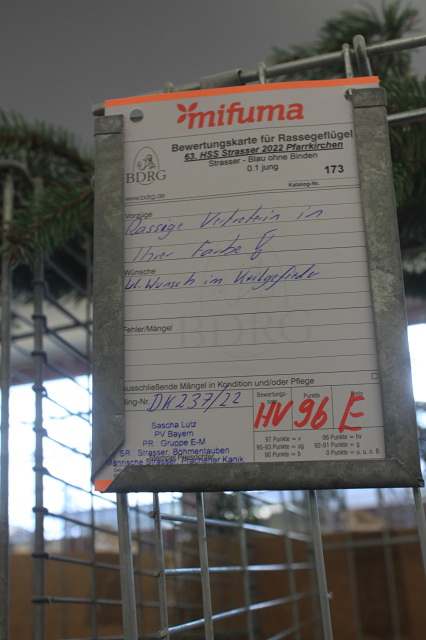 mifuma
Bewertungskarte für Rassegeflügel
63. HSS Strasser 2022 Pfarrkirchen
Strasser - Blau ohne Binden
0.1 jung
173
Katalog-Nr.
BDRG
www.bdrg.de
Vorzüge
Rassige Vertreterin in
Ihrer Farbe
Wünsche
Wunsch im Keilgefieder
Fehler/Mängel
BDRG
ausschließende Mängel in Kondition und/oder Pflege
Ring-Nr. DK 237/22
Bewertungs-
Punkte
HV 96 E
97 Punkte = v 96 Punkte = hv
95-93 Punkte = sg 92-91 Punkte = g
90 Punkte = b 0 Punkte = u. u. o. B
Sascha Lutz
PV Bayern
PR : Gruppe E-M
SR : Strasser, Böhmentauben
Mährische Strasser, Prachener Kanik